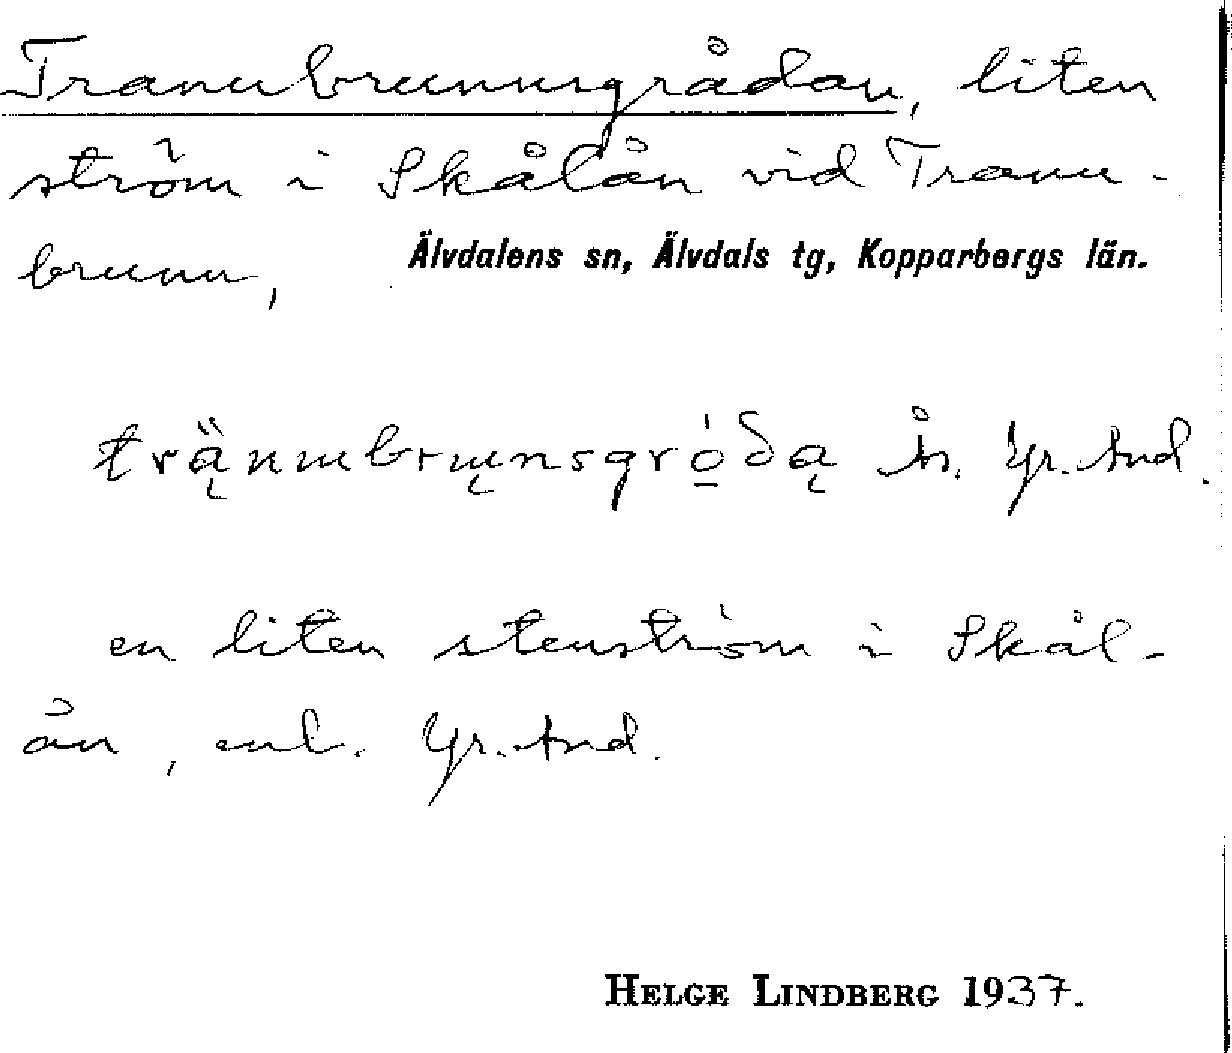 Tranubrunnsgrådan, liten
ström i Skålån vid Tranu-
brunn,
Älvdalens sn, Älvdals tg, Kopparbergs län.
trą̈nubrųnsgró̱ðą Yr. And.
en liten stenström i Skål-
ån, enl. Yr. And.
HELGE LINDBERG 1937.